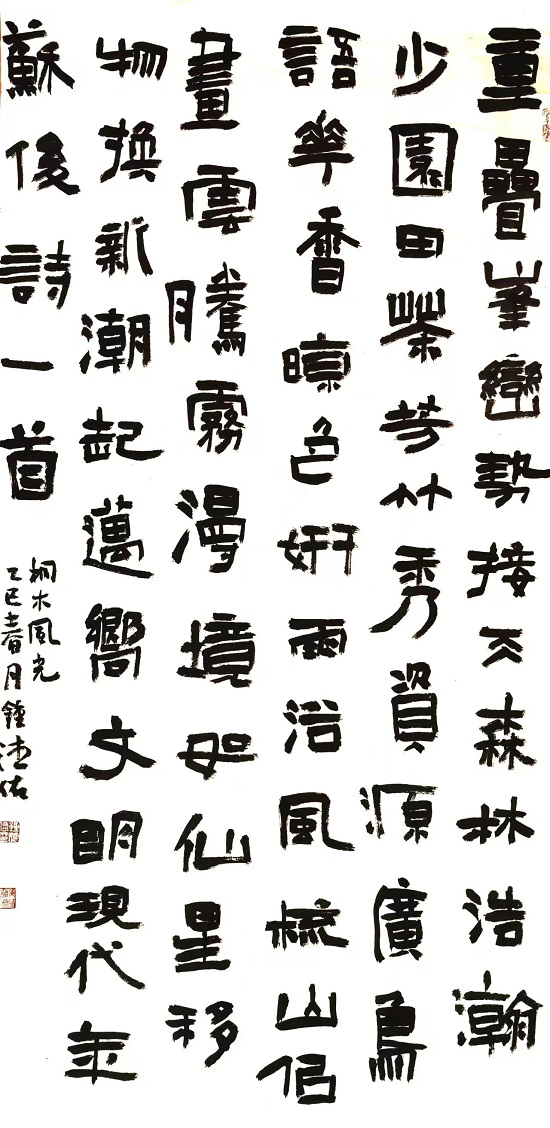 重疊峯巒勢接天森林浩瀚
少園田茶芳竹秀資源廣鳥
語華香晾色妍雨浴風梳山佀
畫雲騰霧漫境如仙星移
物換新潮起邁嚮文明現代年
蘇後詩一首
桐木風光
乙巳春月鍾佑